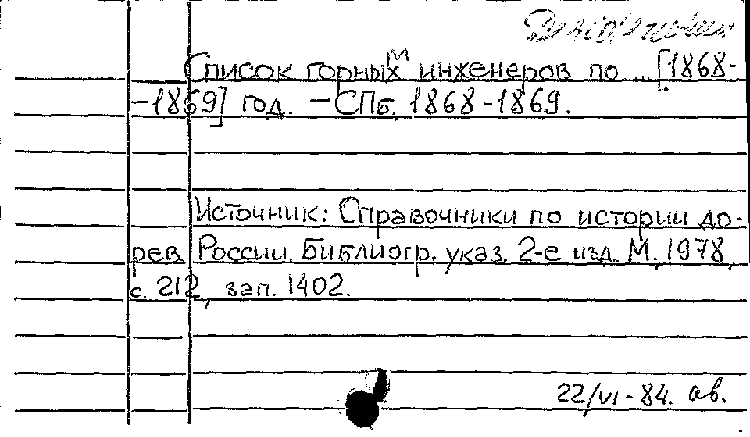 Список горных инженеров по ... [1868-
-1869] год. – СПб. 1868-1869.
Источник: Справочники по истории до-
рев. России. Библиогр. указ. 2-е изд. М., 1978,
с. 212, зап. 1402.
22/VI - 84. ав.